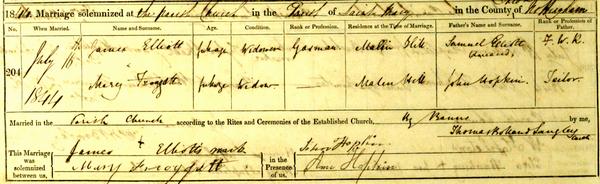 1844. Marriage solemnized at the parish Church in the Parish of Saint Mary in the County of Nottingham
No. When Married. Name and Surname. Age. Condition. Rank or Profession. Residence at the Time of Marriage. Father's Name and Surname. Rank or Profession of Father.
204 July 1844 James Elliott full age Widower Gasman Mallin Hill Samuel Elliott (deceased) F. W. K.
Mary Froggatt full age Widow — Malin Hill John Hopkin Tailor
Married in the Parish Church according to the Rites and Ceremonies of the Established Church, by Banns by me,
Thomas Roland Langley
This Marriage was solemnized between us, James X Elliotts mark Mary Froggatt in the Presence of us, John Hopkin Ann Hopkin